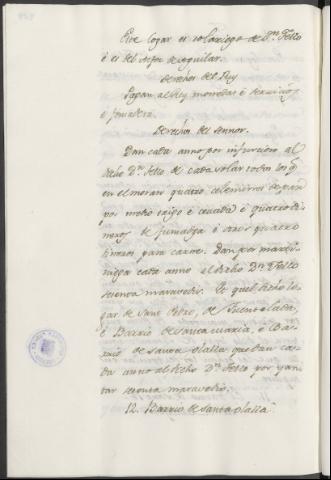 Este logar es solariego de Dn. Tello
é es del Alfoz de Aguilar.
Derechos del Rey
Pagan al Rey monedas é servicios
é fumadera.
Derechos del sennor.
Dan cada anno por infurcion al
dicho Dn. Tello de cada solar todos los q
en el moran quatro celemines de pan
por medio trigo é cevada é quatro di-
neros de fumadga é otros quatro
dineros para carne. Dan por marzad-
niega cada anno al dicho Dn. Tello
setenta maravedis. Et quel dicho lo-
gar de Sant Pedro, de Fuente olada,
é Barrio de Santa Maria, é Bar-
rio de Santa olalla que dan ca-
da anno al dicho Dn. Tello por yan-
tar setenta maravedis.
12. Barrio de Santa olalla